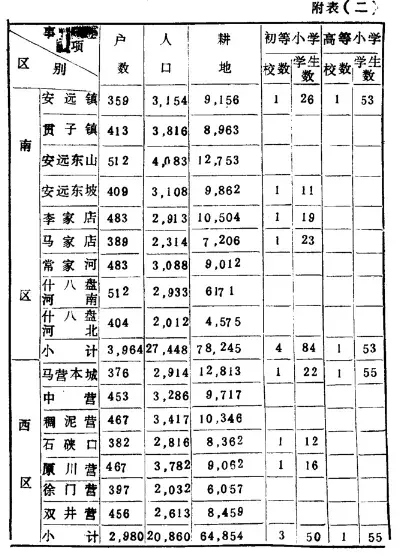 附表(二)
事项 区别 户数 人口 耕地 初等小学 高等小学
校数 学生数 校数 学生数
南区
安远镇 359 3,154 9,156 1 26 1 53
贯子镇 413 3,816 8,963
安远东山 512 4,083 12,753
安远东坡 409 3,108 9,862 1 11
李家店 483 2,913 10,504 1 19
马家店 389 2,314 7,206 1 23
常家河 483 3,088 9,012
什八盘河南 512 2,933 6171
什八盘河北 404 2,012 4,575
小计 3,964 27,448 78,245 4 84 1 53
西区
马营本城 376 2,914 12,813 1 22 1 55
中营 453 3,286 9,717
稠泥营 467 3,417 10,346
石硖口 382 2,816 8,362 1 12
厫川营 467 3,782 9,062 1 16
徐门营 397 2,032 6,057
双井营 456 2,613 8,459
小计 2,980 20,860 64,854 3 50 1 55